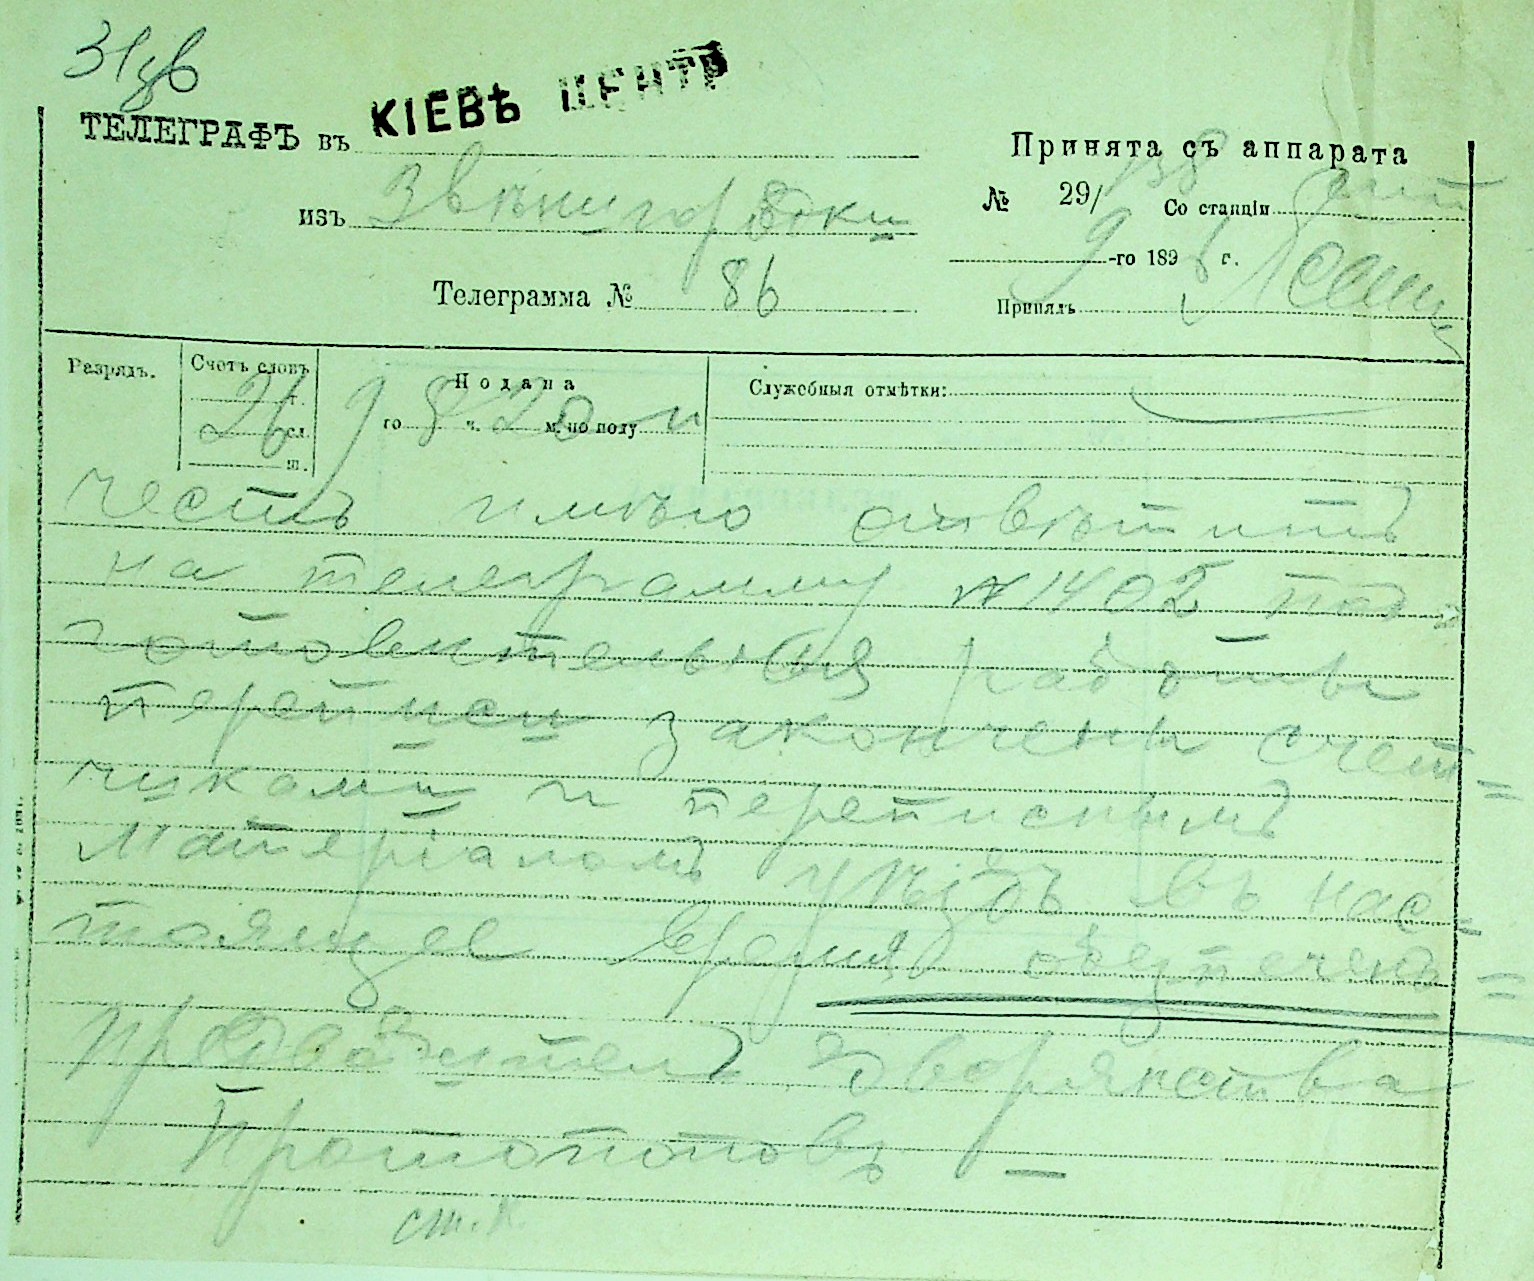 ТЕЛЕГРАФЪ въ КІЕВЪ ЦЕНТР
изъ Звѣнигородки
Телеграмма № 86
Принята съ аппарата
№ 29/ Со станціи
9 -го 1896 г.
Принялъ
Разрядъ. Счетъ словъ Подана Служебныя отмѣтки:
26 сл. 9 го 8 ч. 20 м. по полу п
честь имѣю отвѣтить
на телеграмму № 1402 под=
готовительныя работы
переписи закончены счет=
чиками и переписнымъ
матеріаломъ уѣздъ въ нас=
тоящее время обезпеченъ=
предводитель дворянства
Протопоповъ —